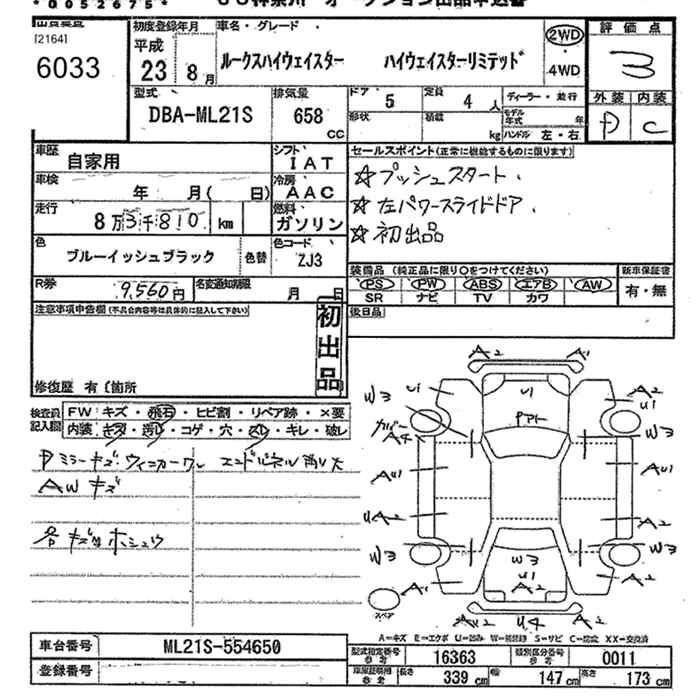 *0052675*
[2164]
6033
初度登録年月
平成
23 8 月
車名・グレード
ルークスハイウェイスター ハイウェイスターリミテッド
2WD
・
4WD
評価点
3
外装 内装
D C
型式
DBA-ML21S
排気量
658
CC
ドア・
5
形状
定員
4 人
積載
kg
ディーラー・並行
モデル年式 年
ハンドル 左・右
車歴
自家用
シフト
IAT
車検
年 月( 日)
冷房
AAC
走行
8万3千810 km
燃料
ガソリン
色
ブルーイッシュブラック
色替
色コード
ZJ3
R券
9,560円
名変通知期限
月 日
セールスポイント(正常に機能するものに限ります)
☆プッシュスタート.
☆左パワースライドドア.
☆初出品
装備品 (純正品に限り○をつけてください)
PS PW ABS エアB AW
SR ナビ TV カワ
新車保証書
有・無
後日品
注意事項申告欄(不具合内容等は具体的に記入して下さい)
初出品
修復歴 有〔箇所
検査員
記入欄
FW キズ・飛石・ヒビ割・リペア跡・×要
内装 キズ・汚レ・コゲ・穴・スレ・キレ・破レ
AW キズ
各 キズ ホシュウ
A2 A1
U1 U1 A2
W3 U1
PP1
カバー
A4 W3
AU1 AU1
UA2 A2
W3 W3 W3
U1
A1 A2 A2
スペア
AU2 U4 A2
A=キズ E=エクボ U=凹み W=補修跡 S=サビ C=腐食 XX=交換済
車台番号
ML21S-554650
登録番号
型式指定番号
参考
16363
類別区分番号
参考
0011
車庫証明用
参考
長さ 339 cm
幅 147 cm
高さ 173 cm